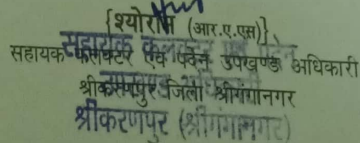 {श्योराम (आर.ए.एस)}
सहायक कलक्टर एवं पदेन उपखण्ड अधिकारी
श्रीकरणपुर जिला श्रीगंगानगर
श्रीकरणपुर (श्रीगंगानगर)